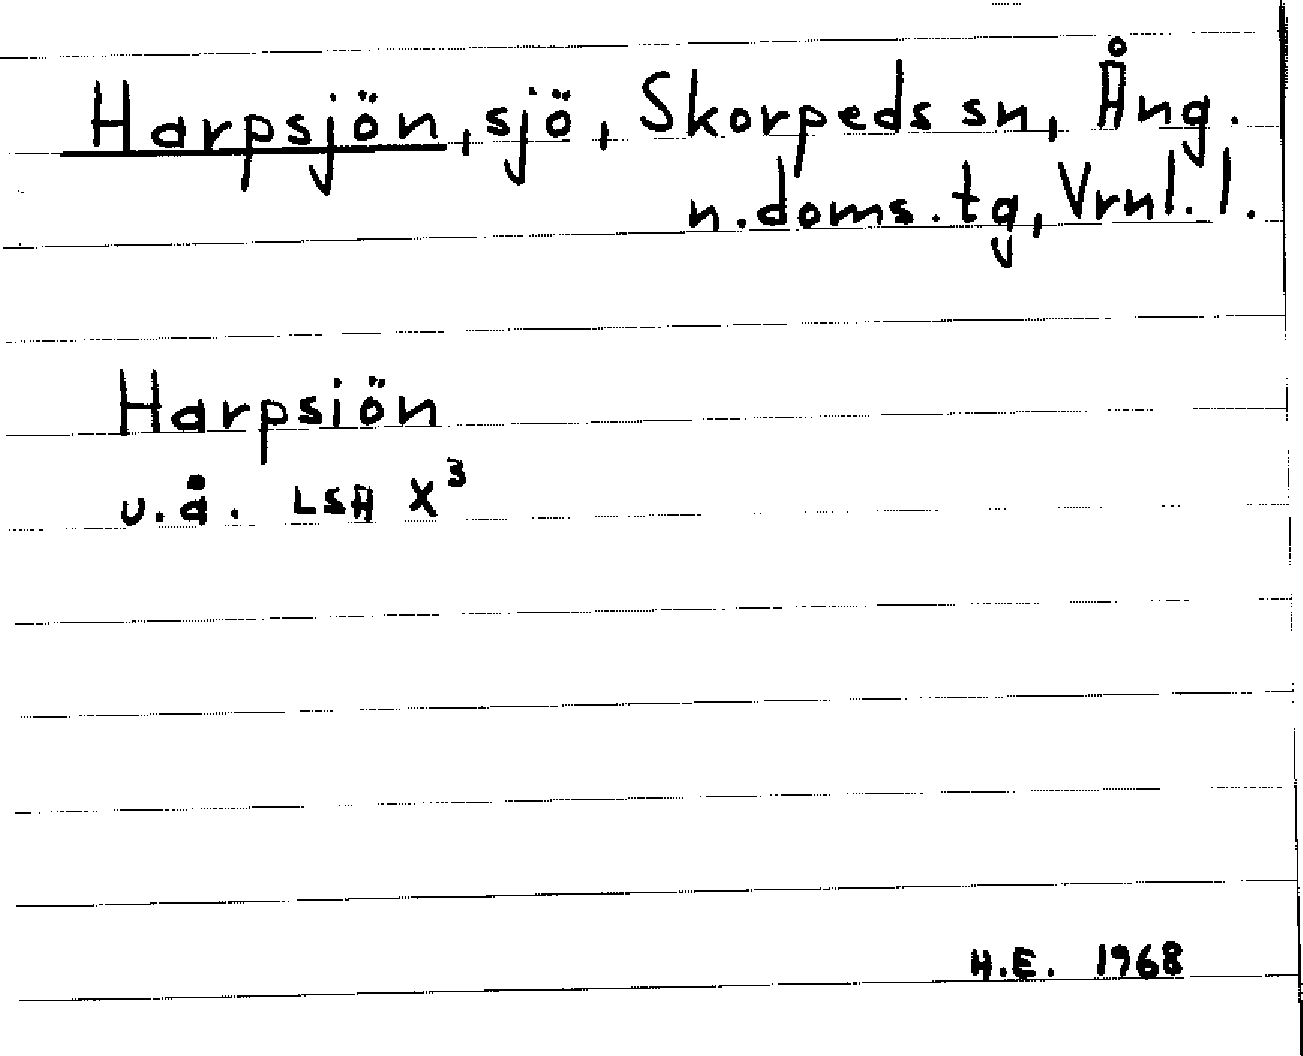 Harpsjön, sjö, Skorpeds sn, Ång.
n.doms.tg, Vrnl.l.
Harpsiön
u.å. LSA X³
H.E. 1968